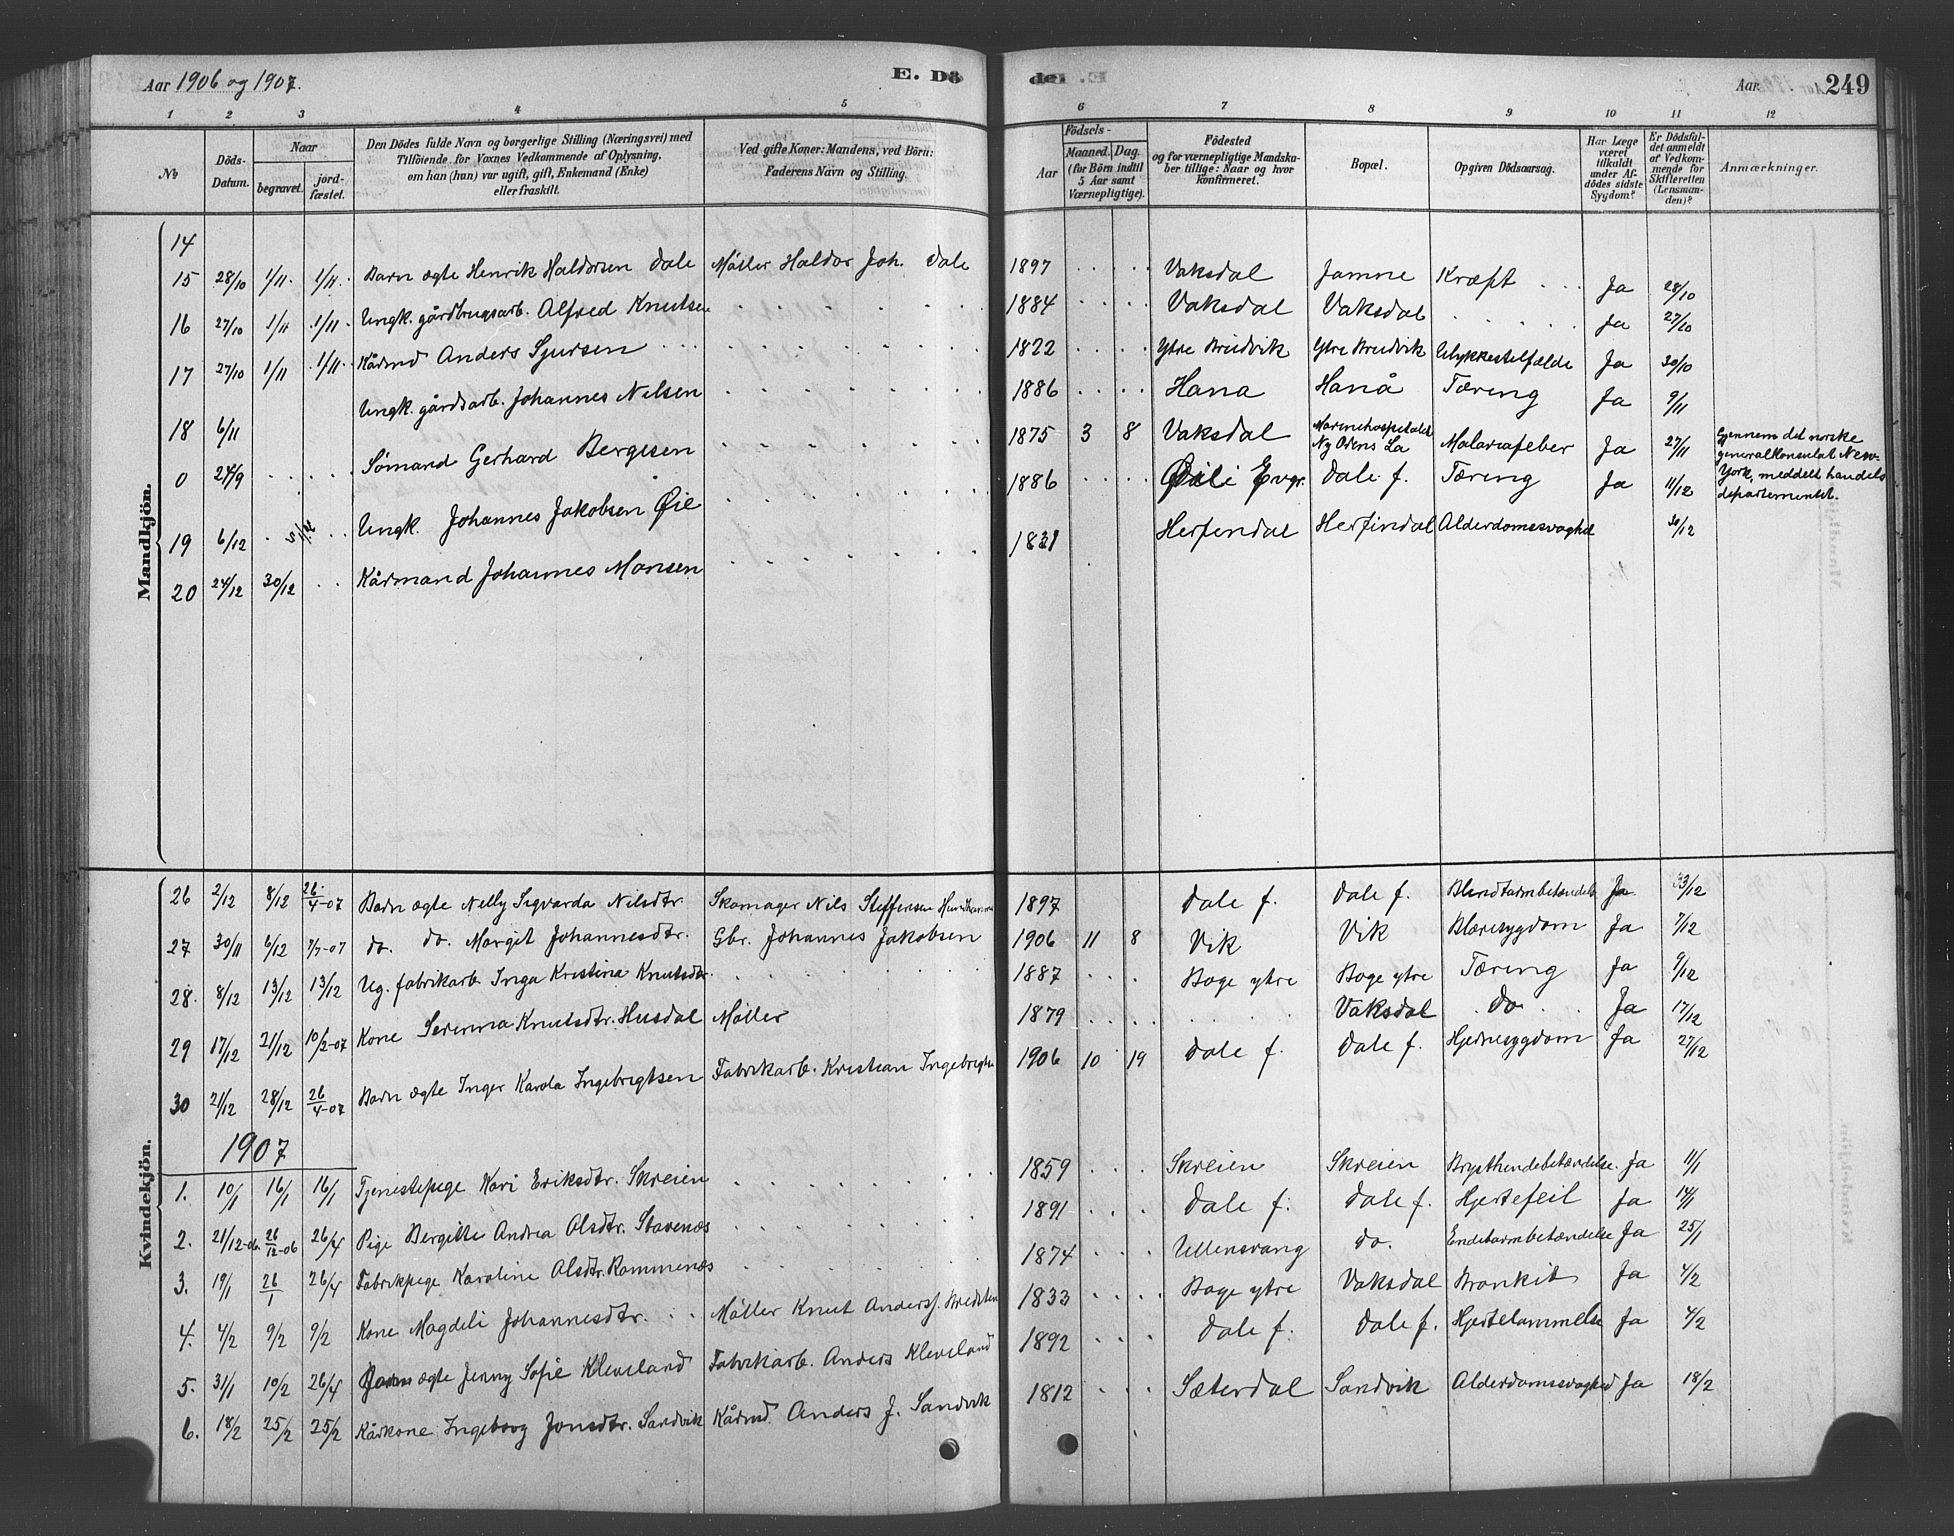 Aar 1906 og 1907. E. Dö
1 2 3 4 5
№ Döds-Datum. Naar begravet. jordfæstet. Den Dödes fulde Navn og borgerlige Stilling (Næringsvei) med Tilföiende for Voxnes Vedkommende af Oplysning, om han (hun) var ugift, gift, Enkemand (Enke) eller fraskilt. Ved gifte Koner: Mandens, ved Börn: Faderens Navn og Stilling.
Aar 249
6 7 8 9 10 11 12
Födsels- Aar Maaned. Dag. (for Börn indtil 5 Aar samt Værnepligtige). Födested og for værnepligtige Mandskaber tillige: Naar og hvor Konfirmeret. Bopæl. Opgiven Dödsaarsag. Har Læge været tilkaldt under Afdödes sidste Sygdom? Er Dödsfaldet anmeldt af Vedkommende for Skifteretten (Lensmanden)? Anmærkninger.
Mandkjön.
14
15 28/10 1/11 1/11 Barn ægte Henrik Haldorsen Dale Möller Haldor Joh. Dale 1897 Vaksdal Jamne Kræft Ja 28/10
16 27/10 1/11 1/11 Ungk. gårdbrugsarb. Alfred Knutsen 1884 Vaksdal Vaksdal Ja 27/10
17 27/10 1/11 1/11 Kårmd Anders Sjursen 1822 Ytre Bruvik Ytre Bruvik Ulykkestilfælde Ja 30/10
18 6/11 Ungk. gårdsarb. Johannes Nilsen 1886 Hana Hanå Tæring Ja 9/11
0 24/9 Sømand Gerhard Bergesen 1875 3 8 Vaksdal Marinehospitalet Ny Olens La Malariafeber Ja 27/11 Gjennem det norske generalkonsulat New-York, meddelt handels departementet.
19 6/12 Ungk. Johannes Jakobsen Øie 1886 Evgr. Dale f. Tæring Ja 11/12
20 24/12 30/12 Kårmand Johannes Monsen 1821 Herfendal Herfindal Alderdomssvaghed 30/12
Kvindekjön.
26 2/12 8/12 26/4-07 Barn ægte Nelly Sigvarda Nilsdtr. Skomager Nils Steffensen 1897 Dale f. Dale f. Blindtarmbetændelse Ja 3/12
27 30/11 6/12 7/7-07 do. do. Margit Johannesdtr. Gbr. Johannes Jakobsen 1906 11 8 Vik Vik Blæresygdom Ja 7/12
28. 8/12 13/12 13/12 Ug. fabrikarb. Inga Kristina Knutsdtr. 1887 Boge ytre Boge ytre Tæring Ja 9/12
29 17/12 21/12 10/2-07 Kone Severina Knutsdtr. Husdal Möller 1879 Vaksdal do Ja 17/12
30 21/12 28/12 26/4-07 Barn ægte Inger Karda Ingebrigtsen Fabrikarb. Kristian Ingebrigtsen 1906 10 19 Dale f. Dale f. Hjernesygdom Ja 27/12
1907
1. 10/1 16/1 16/1 Tjenestepige Kari Eriksdtr. Skreien 1859 Skreien Skreien Brysthindebetændelse. Ja 11/1
2. 21/12-06. 26/12-06 26/4 Pige Bergitte Andrea Olsdtr. Stavenæs 1891 Dale f. Dale f. Hjertefeil Ja 14/1
3. 19/1 26/1 26/4 Fabrikpige Karoline Olsdtr. Rommenæs 1874 Ullensvang do. Endetarmbetændelse Ja 25/1
4. 4/2 9/2 9/2 Kone Magdeli Johannesdtr. Möller Knut Anders. 1833 Boge ytre Vaksdal Bronkit Ja 4/2
5. 31/1 10/2 26/4 Barn ægte Jenny Sofie Kleveland Fabrikarb. Anders Kleveland 1892 Dale f. Dale f. Hjertelammelse Ja 4/2
6. 18/2 25/2 25/2 Kårkone Ingeborg Jonsdtr. Sandvik Kårmd. Anders J. Sandvik 1812 Sæterdal Sandvik Alderdomssvaghed Ja 18/2